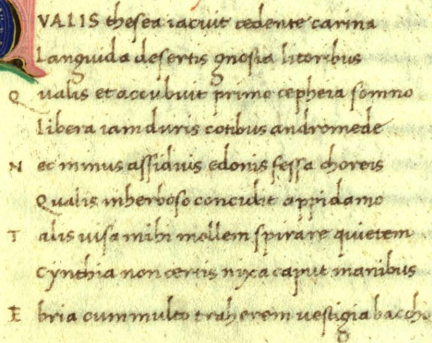 QVALIS thesea iacuit cedente carina
Languida desertis gnosia litoribus
Qualis et accubuit primo cepheia somno
Libera iam duris cotibus andromede
Nec minus assiduis edonis fessa choreis
Qualis in herboso concidit appidamo
Talis uisa mihi mollem spirare quietem
Cynthia non certis nixa caput manibus
Ebria cum multo traherem uestigia baccho